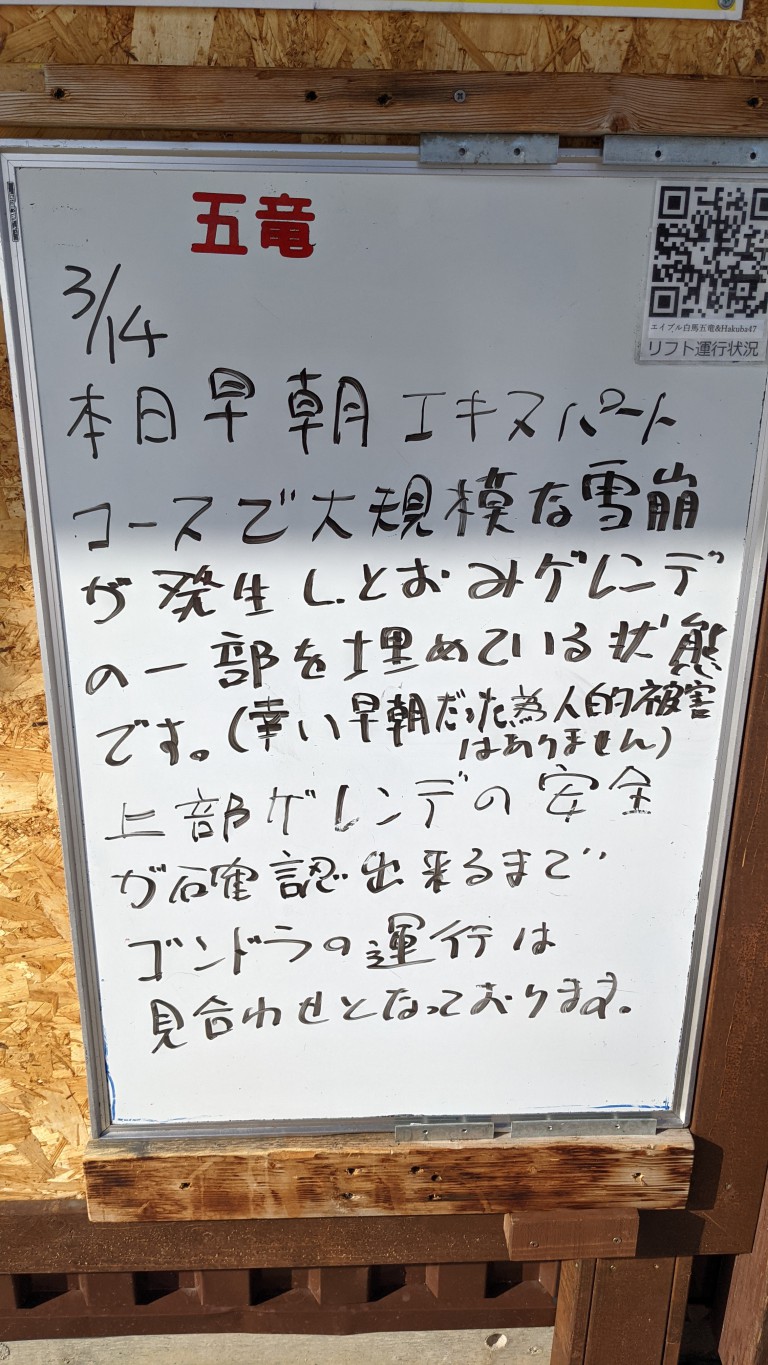 五竜
エイブル白馬五竜&Hakuba47
リフト運行状況
3/14
本日早朝エキスパート
コースで大規模な雪崩
が発生し、とおみゲレンデ
の一部を埋めている状態
です。(幸い早朝だった為人的被害
はありません)
上部ゲレンデの安全
が確認出来るまで
ゴンドラの運行は
見合わせとなっております。